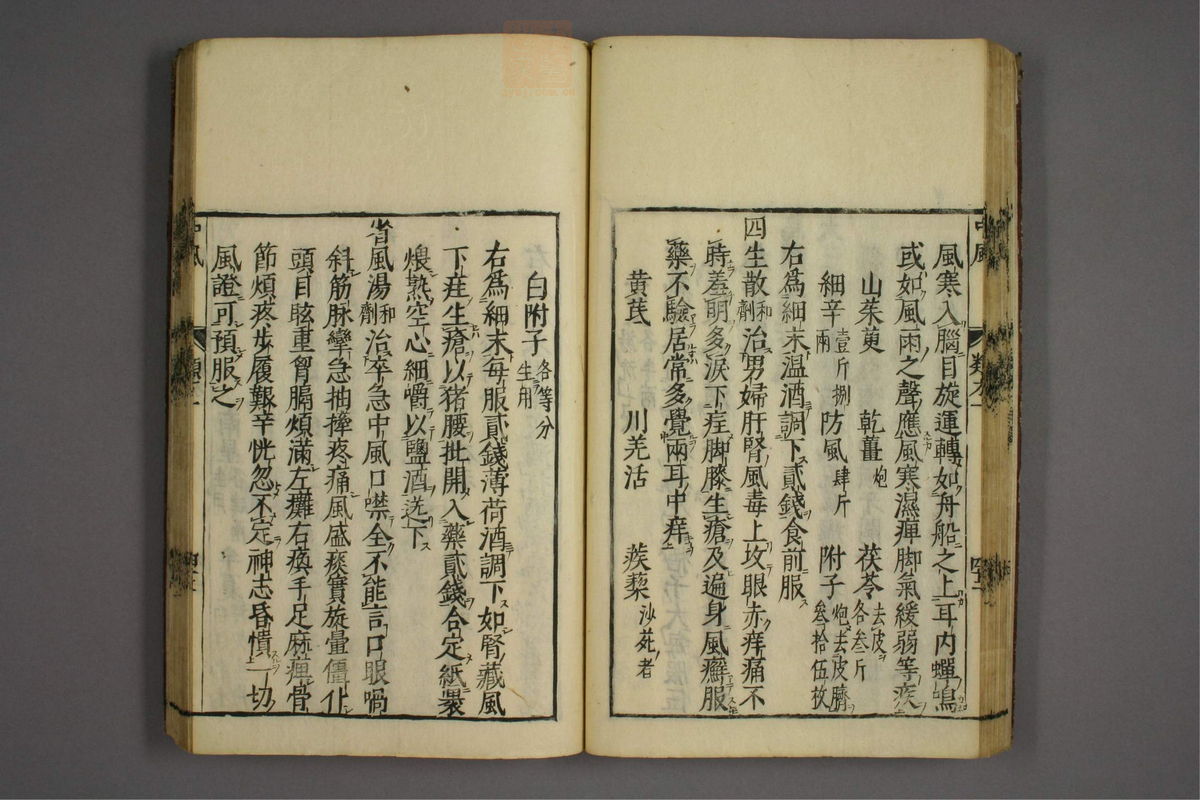 風寒入腦目旋運轉如舟船之上耳内蟬鳴
或如風雨之聲應風寒濕痺脚氣緩弱等疾
山茱萸 乾薑炮 茯苓去皮各叁斤
細辛壹斤捌兩 防風肆斤 附子炮去皮臍叁拾伍枚
右爲細末温酒調下貳錢食前服
四生散和劑治男婦肝腎風毒上攻眼赤痒痛不
時羞明多淚下疰脚膝生瘡及遍身風癬服
藥不驗居常多覺兩耳中痒
黄茋 川羌活 蒺藜沙苑者
白附子各等分生用
右爲細末每服貳錢薄荷酒調下如腎藏風
下疰生瘡以猪腰批開入藥貳錢合定紙裹
煨熟空心細嚼以鹽酒送下
省風湯和劑治卒急中風口噤全不能言口眼喎
斜筋脉攣急抽掣疼痛風盛痰實旋暈僵仆
頭目眩重胷膈煩滿左癱右瘓手足麻痺骨
節煩疼步履艱辛恍忽不定神志昏憒一切
風證可預服之
中風